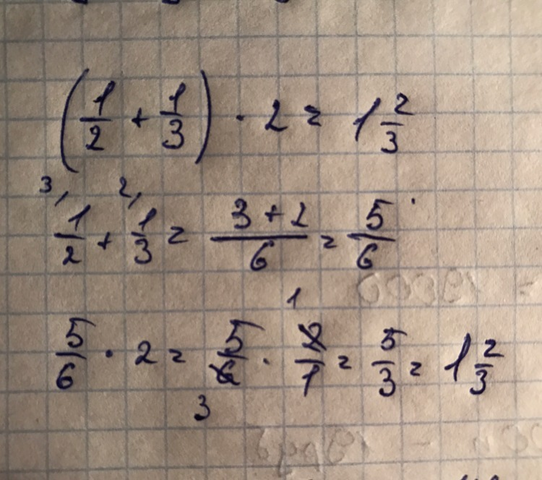 (1/2 + 1/3) · 2 = 1 2/3
1/2 + 1/3 = 3 + 2/6 = 5/6
5/6 · 2 = 5/6 · 2/1 = 5/3 = 1 2/3